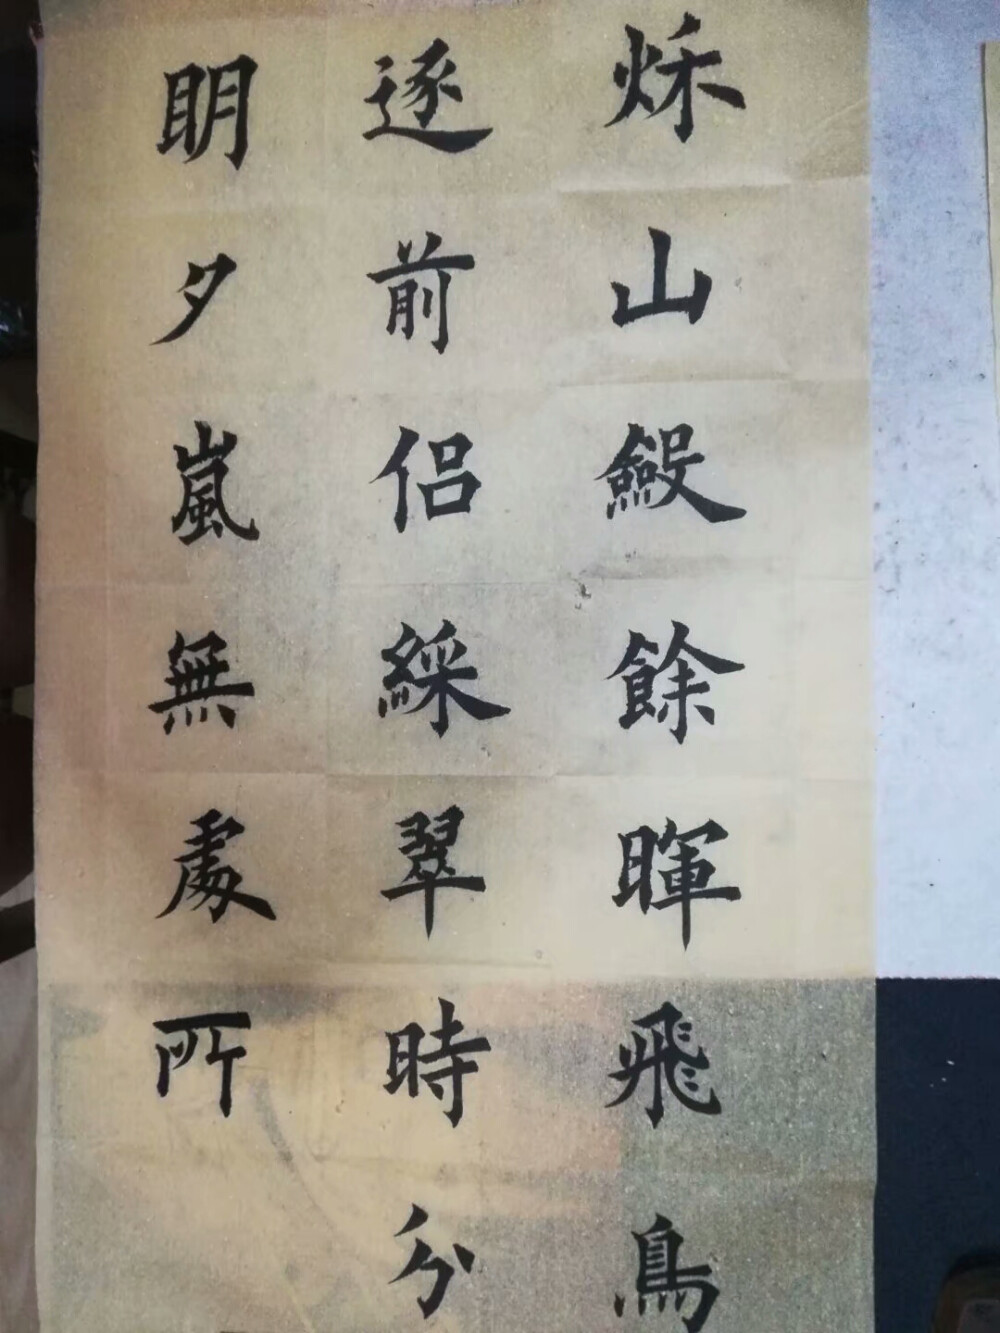 秌山斂餘暉飛鳥
逐前侶綵翠時分
眀夕嵐無處所